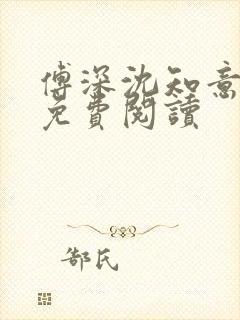 傅深沈知意
免費閱讀
郜氏